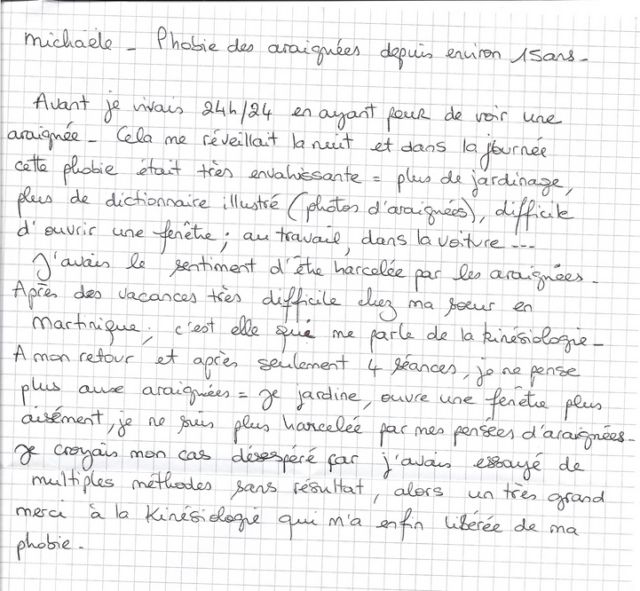 Michaële - Phobie des araignées depuis environ 15ans -
Avant je vivais 24h/24 en ayant peur de voir une
araignée - Cela me réveillait la nuit et dans la journée
cette phobie était très envahissante = plus de jardinage,
plus de dictionnaire illustré (photos d'araignées), difficile
d'ouvrir une fenêtre ; au travail, dans la voiture ---
J'avais le sentiment d'être harcelée par les araignées -
Après des vacances très difficile chez ma soeur en
Martinique ; c'est elle qui me parle de la kinésiologie -
A mon retour et après seulement 4 séances, je ne pense
plus aux araignées = je jardine, ouvre une fenêtre plus
aisément, je ne suis plus harcelée par mes pensées d'araignées -
Je croyais mon cas désespéré car j'avais essayé de
multiples méthodes sans résultat, alors un très grand
merci à la Kinésiologie qui m'a enfin libérée de ma
phobie -